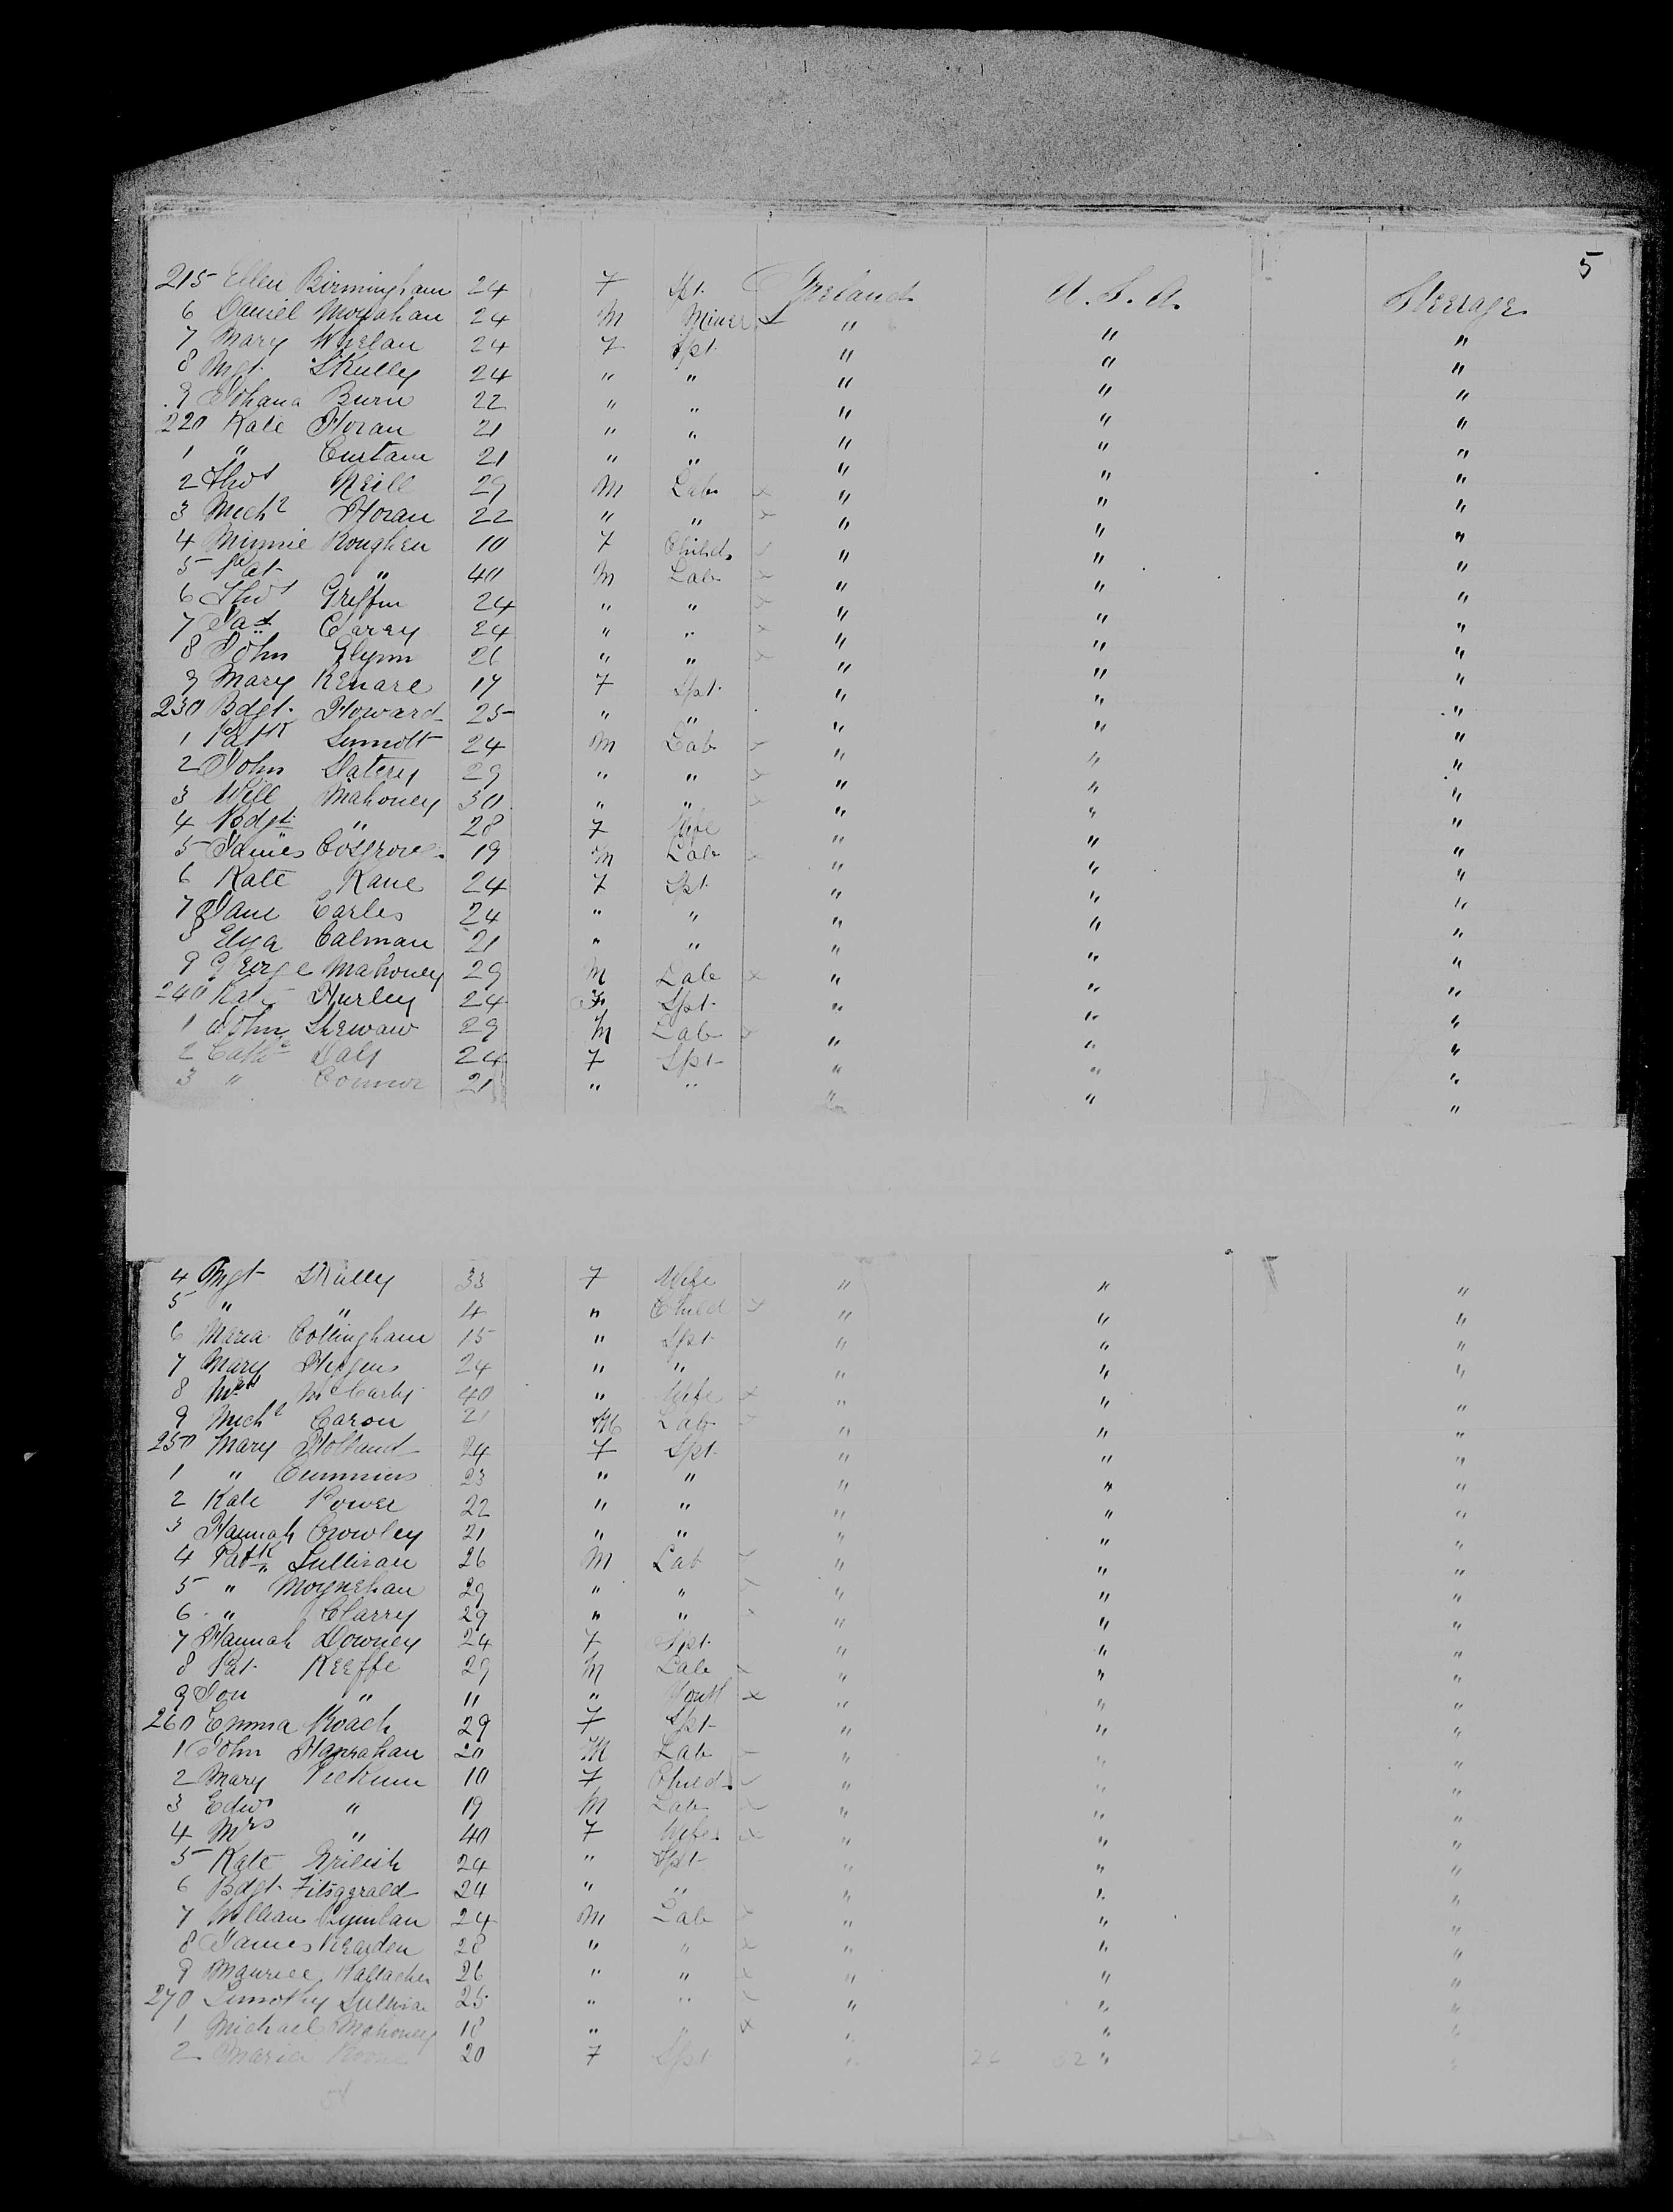 5
215 Ellen Birmingham 24 F Spt. Ireland U.S.A. Steerage
6 Daniel Monahan 24 M Miner x " " "
7 Mary Whelan 24 F Spt. " " "
8 Mgt. Skully 24 " " " " "
9 Johana Burn 22 " " " " "
220 Kate Horan 21 " " " " "
1 " Curtain 21 " " " " "
2 Thos Neill 29 M Lab x " " "
3 Michl Horan 22 " " x " " "
4 Minnie Roughen 10 F Child " " "
5 Pat " 40 M Lab x " " "
6 Thos Griffin 24 " " x " " "
7 Jas Carey 24 " " x " " "
8 John Glynn 26 " " x " " "
9 Mary Kenare 17 F Spt. " " "
230 Bdgt. Howard 25 " " " " "
1 Patk Sinnott 24 M Lab x " " "
2 John Slatery 29 " " x " " "
3 Will Mahoney 30 " " x " " "
4 Bdgt. " 28 F Wife " " "
5 James Cosgrove 19 M Lab x " " "
6 Kate Kane 24 F Spt. " " "
7 Jane Earles 24 " " " " "
8 Elya Calman 21 " " " " "
9 George Mahoney 29 M Lab x " " "
240 Kate Hurley 24 F Spt. " " "
1 John 29 M Lab x " " "
2 Cathe Daly 24 F Spt " " "
3 " Connor 21 " " " " "
4 Mgt Skully 33 F Wife " " "
5 " " 4 " Child x " " "
6 Maria Collingham 15 " Spt " " "
7 Mary 24 " " " " "
8 McCarty 40 " Wife x " " "
9 Michl Caron 21 M Lab x " " "
250 Mary Holland 24 F Spt. " " "
1 " Cummins 23 " " " " "
2 Kate Power 22 " " " " "
3 Hannah Crowley 21 " " " " "
4 Patk Sullivan 26 M Lab x " " "
5 " Moynehan 29 " " x " " "
6 " Clarry 29 " " x " " "
7 Hannah Downey 24 F Spt. " " "
8 Pat. Keeffe 29 M Lab x " " "
9 Jon " 11 " Youth x " " "
260 Emma Roach 29 F Spt " " "
1 John Hanrahan 20 M Lab x " " "
2 Mary 10 F Child x " " "
3 Edwd " 19 M Lab x " " "
4 Mrs " 40 F Wife x " " "
5 Kate 24 " Spt " " "
6 Bdgt. Fitsggrald 24 " " " " "
7 William 24 M Lab x " " "
8 James Rearden 28 " " x " " "
9 Maurice 26 " " x " " "
270 Timothy Sullivan 25 " " x " " "
1 Michael Mahoney 18 " " x " " "
2 Maria 20 F Spt " " "